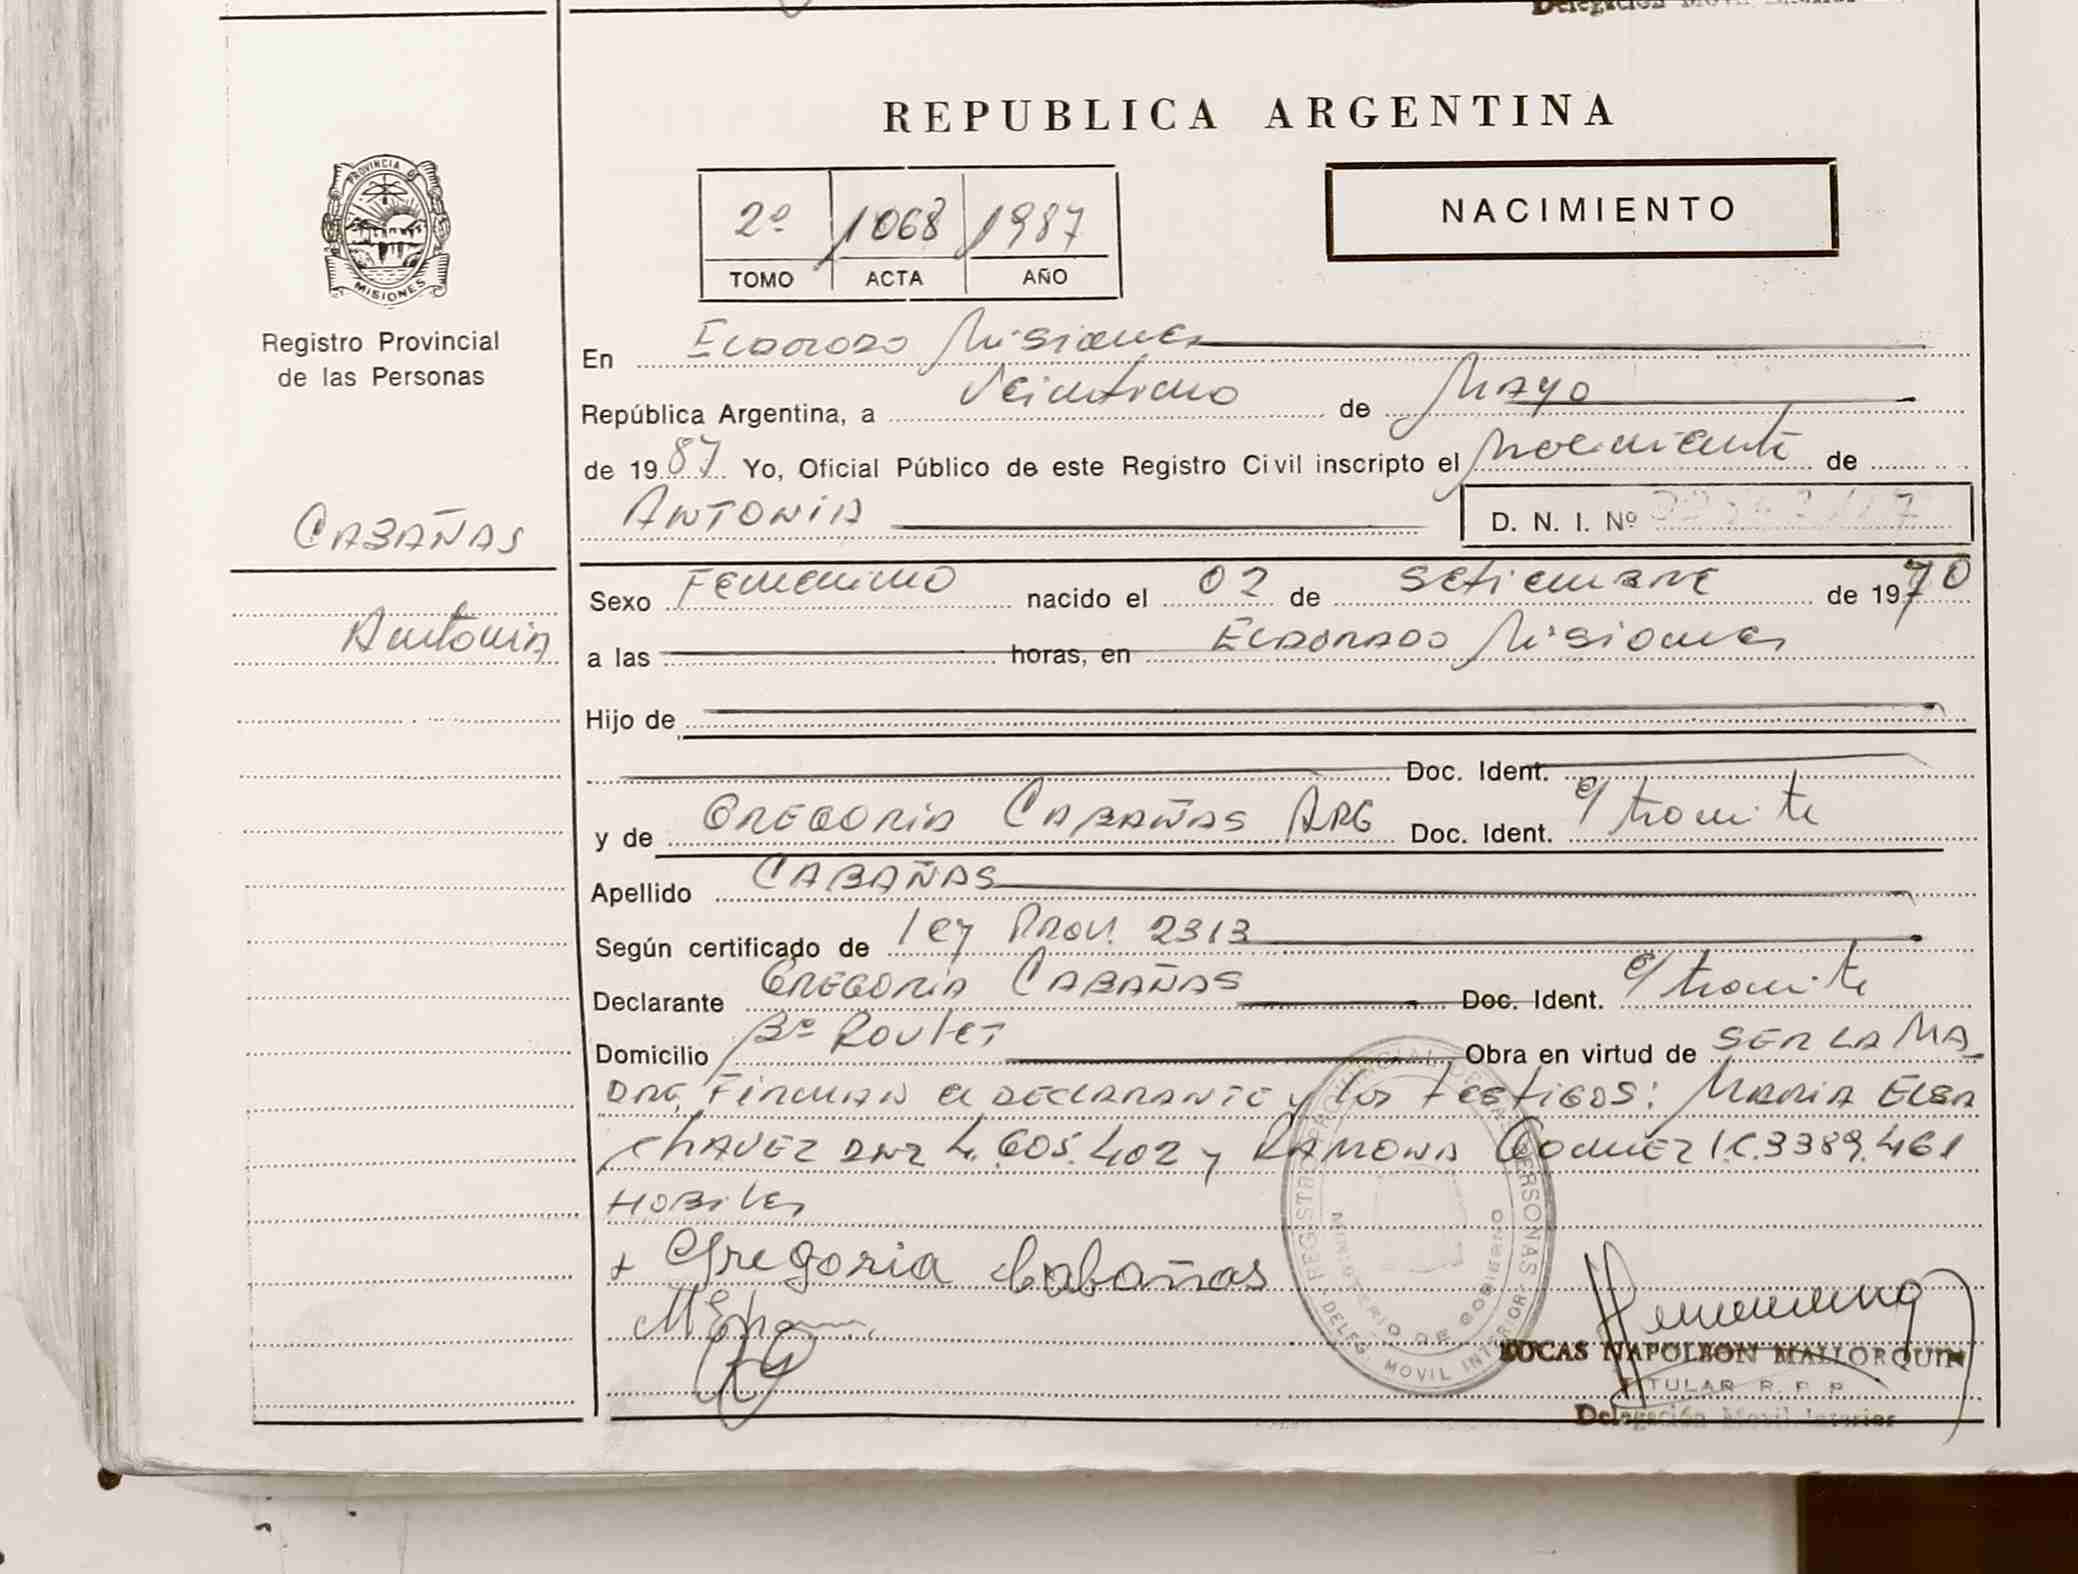 REPUBLICA ARGENTINA
NACIMIENTO
2º 1068 1987
TOMO ACTA AÑO
PROVINCIA DE
MISIONES
Registro Provincial
de las Personas
CABAÑAS
Antonia
En ELDORADO Misiones
República Argentina, a Veintiuno de MAYO
de 1987 Yo, Oficial Público de este Registro Civil inscripto el Nacimiento de
ANTONIA D. N. I. Nº
Sexo Femenino nacido el 02 de setiembre de 1970
a las horas, en ELDORADO Misiones
Hijo de
Doc. Ident.
y de GREGORIA CABAÑAS ARG Doc. Ident. e/ tramite
Apellido CABAÑAS
Según certificado de ley Prov. 2313
Declarante GREGORIA CABAÑAS Doc. Ident. e/ tramite
Domicilio Bº Roulet Obra en virtud de SER LA MA_
DRE, Firman el DECLARANTE y los Testigos: MARIA ELSA
CHAVEZ DNI 4.605.402 y RAMONA GOMEZ I.C. 3389.461
HABiles
+ Gregoria Cabañas
REGISTRO PROVINCIAL DE LAS PERSONAS
MINISTERIO DE GOBIERNO
DELEG. MOVIL INTERIOR
LUCAS NAPOLEON MALLORQUIN
TITULAR R. P. P.
Delegación Móvil Interior